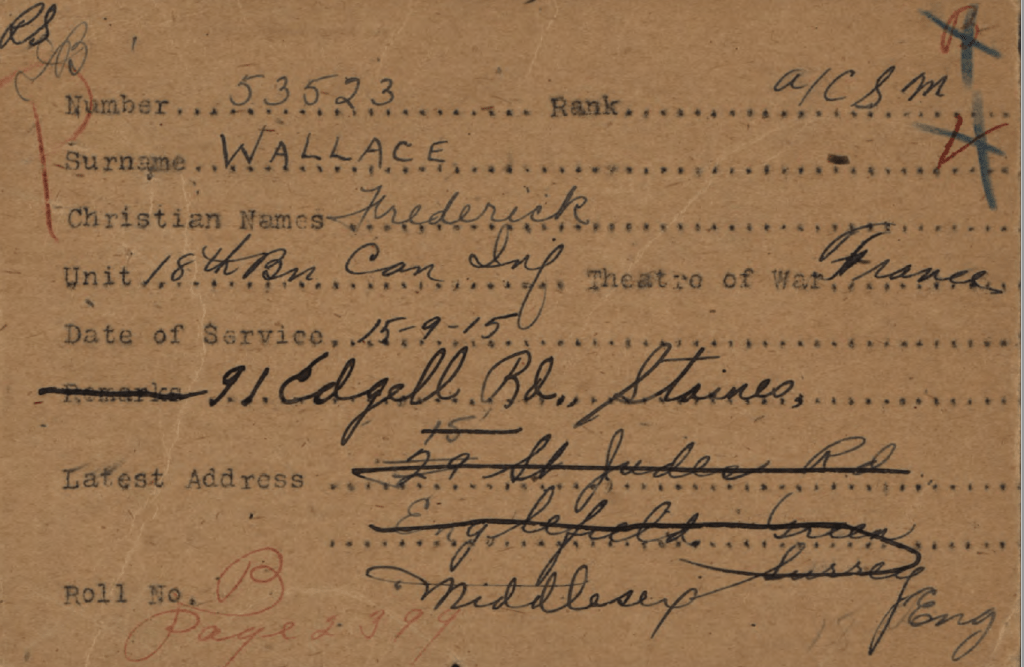 RS
AB
Number 53523 Rank a/CSM
Surname WALLACE
Christian Names Frederick
Unit 18th Bn Can Inf Theatre of War France
Date of Service 15-9-15
Remarks 91 Edgell Rd., Staines,
15
Latest Address 29 St Judes Rd
Englefield Green
Surrey
Middlesex Eng
Roll No. B
Page 2399